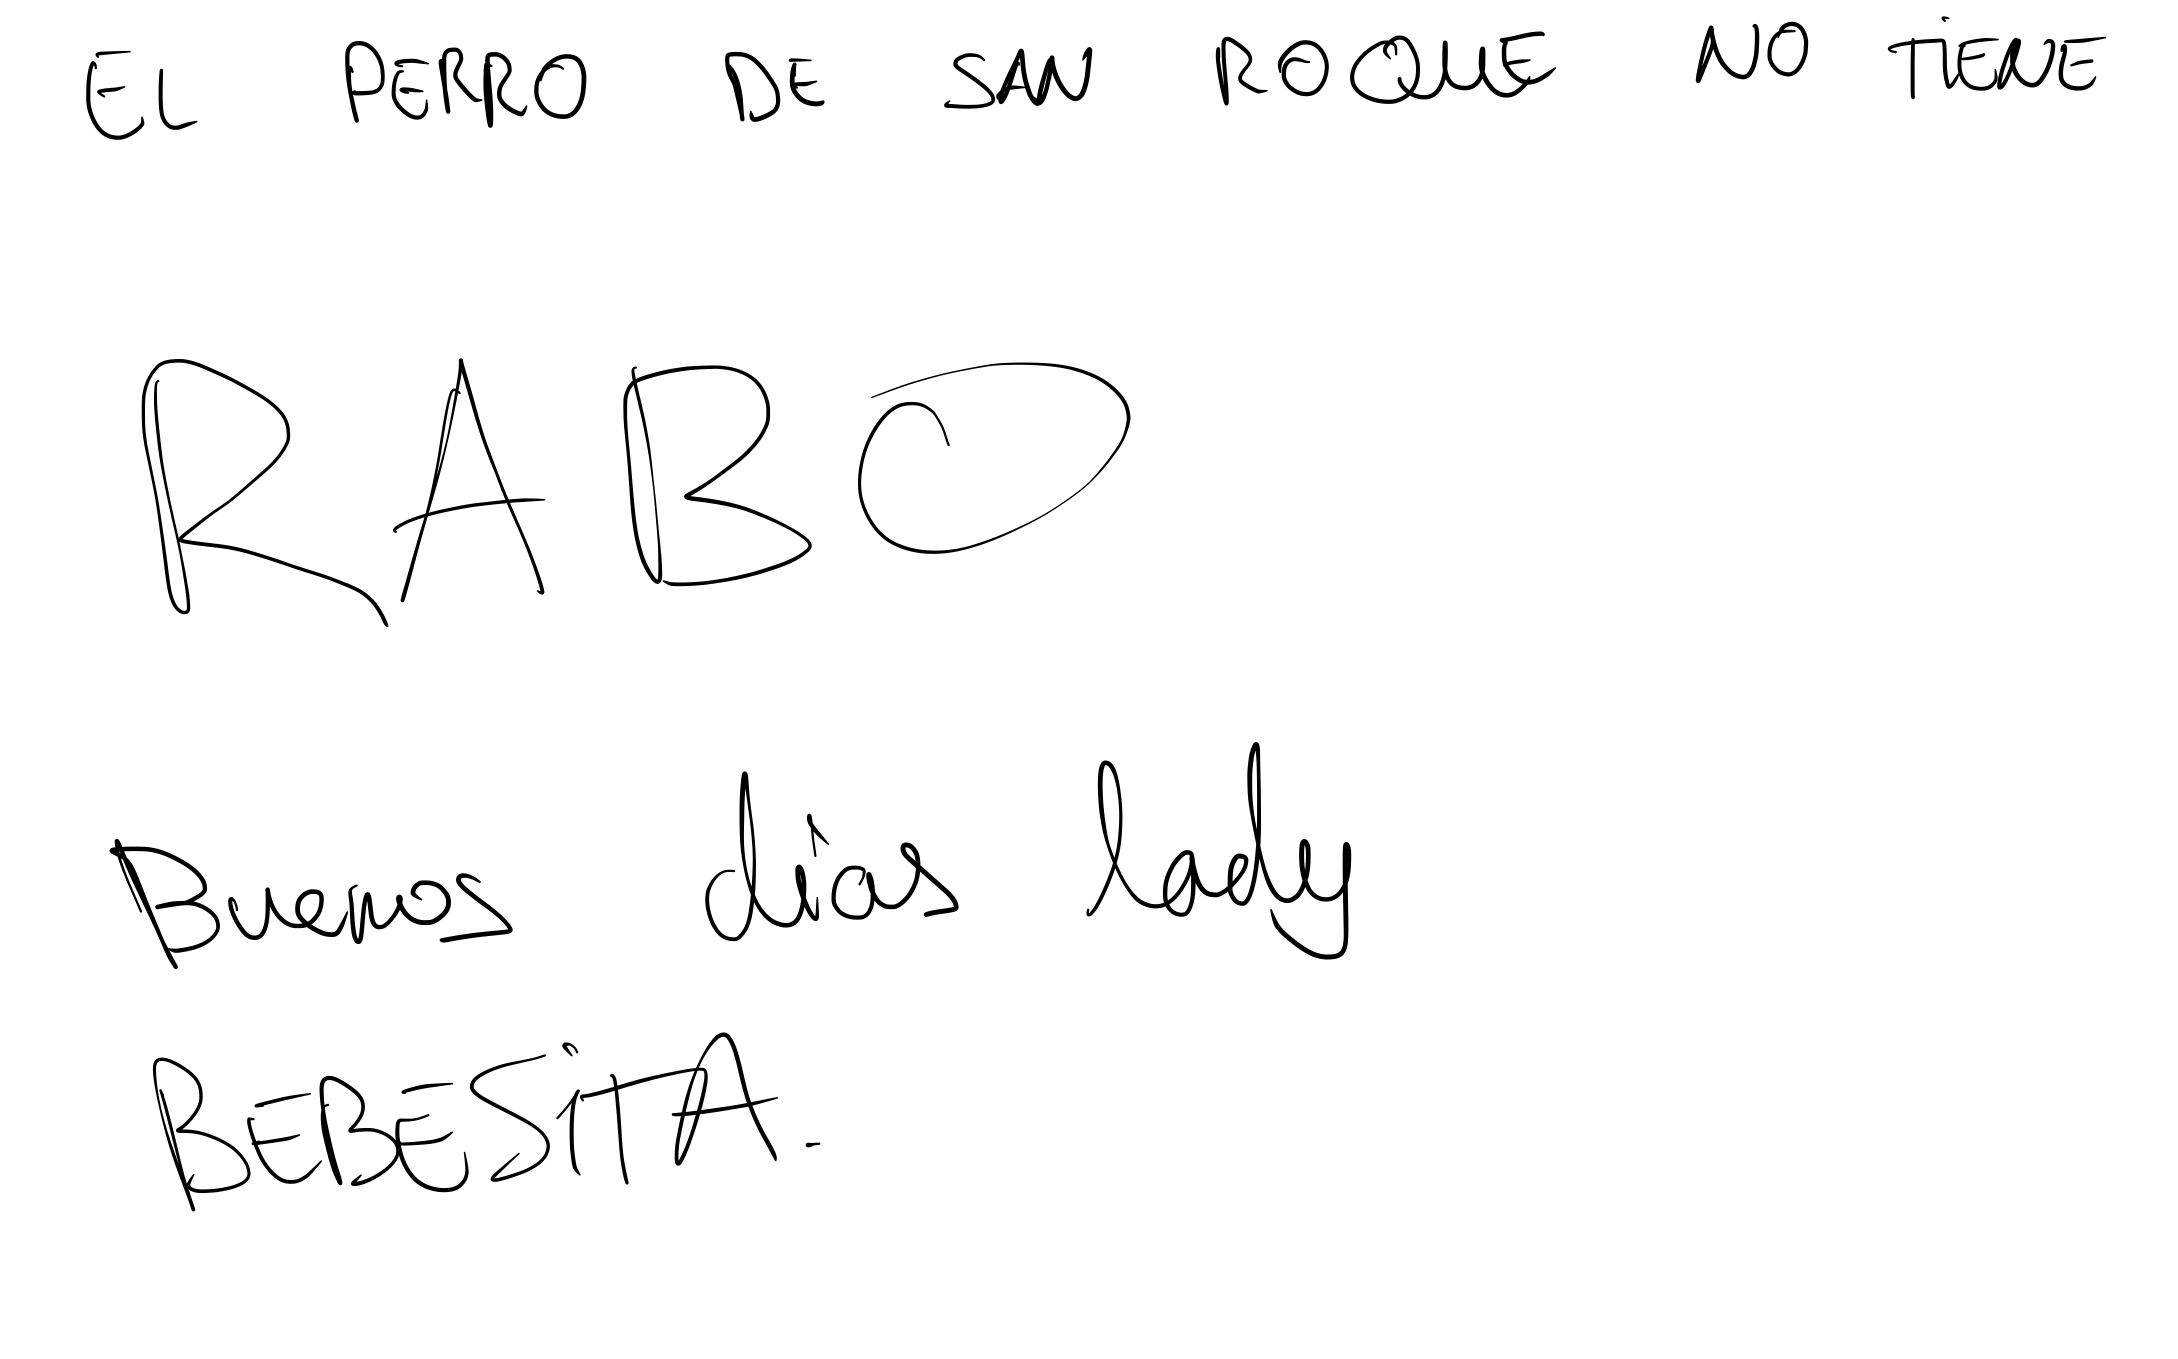 EL PERRO DE SAN ROQUE NO TIENE
RABO
Buenos días lady
BEBESITA.